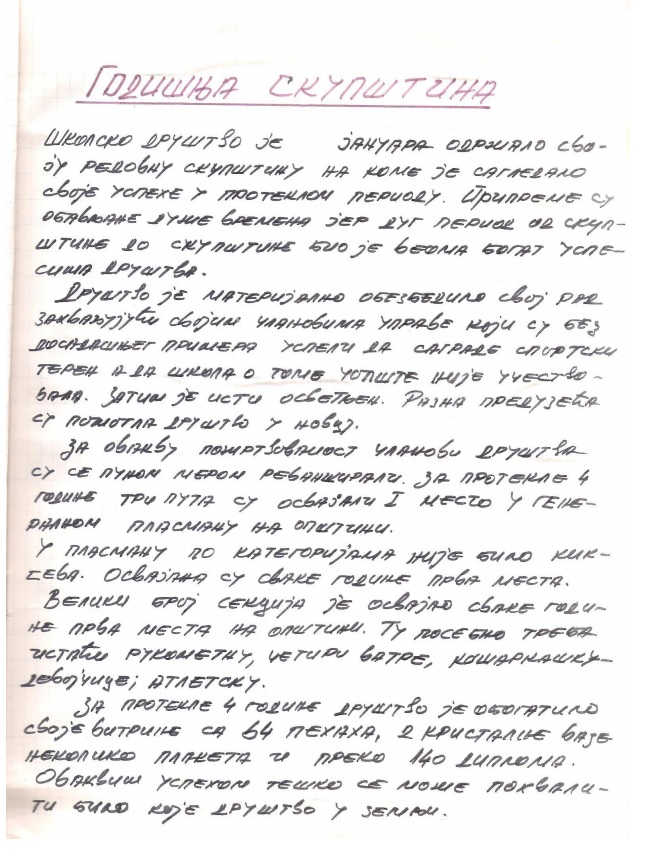 ГОДИШЊА СКУПШТИНА
ШКОЛСКО ДРУШТВО ЈЕ ЈАНУАРА ОДРЖАЛО СВО-
ЈУ РЕДОВНУ СКУПШТИНУ НА КОМЕ ЈЕ САГЛЕДАЛО
СВОЈЕ УСПЕХЕ У ПРОТЕКЛОМ ПЕРИОДУ. ПРИПРЕМЕ СУ
ОБАВЉАНЕ ДУЖЕ ВРЕМЕНА ЈЕР ДУГ ПЕРИОД ОД СКУП-
ШТИНЕ ДО СКУПШТИНЕ БИО ЈЕ ВЕОМА БОГАТ УСПЕ-
СИМА ДРУШТВА.
ДРУШТВО ЈЕ МАТЕРИЈАЛНО ОБЕЗБЕДИЛО СВОЈ РАД
ЗАХВАЉУЈУЋИ СВОЈИМ ЧЛАНОВИМА УПРАВЕ КОЈИ СУ БЕЗ
ДОСАДАШЊЕГ ПРИМЕРА УСПЕЛИ ДА САГРАДЕ СПОРТСКИ
ТЕРЕН А ДА ШКОЛА О ТОМЕ УОПШТЕ НИЈЕ УЧЕСТВО-
ВАЛА. ЗАТИМ ЈЕ ИСТИ ОСВЕТЉЕН. РАЗНА ПРЕДУЗЕЋА
СУ ПОМОГЛА ДРУШТВО У НОВЦУ.
ЗА ОВАКВУ ПОЖРТВОВАНОСТ ЧЛАНОВИ ДРУШТВА
СУ СЕ ПУНОМ МЕРОМ РЕВАНШИРАЛИ. ЗА ПРОТЕКЛЕ 4
ГОДИНЕ ТРИ ПУТА СУ ОСВАЈАЛИ I МЕСТО У ГЕНЕ-
РАЛНОМ ПЛАСМАНУ НА ОПШТИНИ.
У ПЛАСМАНУ ПО КАТЕГОРИЈАМА НИЈЕ БИЛО КИК-
СЕВА. ОСВАЈАНА СУ СВАКЕ ГОДИНЕ ПРВА МЕСТА.
ВЕЛИКИ БРОЈ СЕКЦИЈА ЈЕ ОСВАЈАО СВАКЕ ГОДИ-
НЕ ПРВА МЕСТА НА ОПШТИНИ. ТУ ПОСЕБНО ТРЕБА
ИСТАЋИ РУКОМЕТНУ, ЧЕТИРИ ВАТРЕ, КОШАРКАШКУ-
ДЕВОЈЧИЦЕ; АТЛЕТСКУ.
ЗА ПРОТЕКЛЕ 4 ГОДИНЕ ДРУШТВО ЈЕ ОБОГАТИЛО
СВОЈЕ ВИТРИНЕ СА 64 ПЕХАХА, 2 КРИСТАЛНЕ ВАЗЕ
НЕКОЛИКО ПЛАКЕТА И ПРЕКО 140 ДИПЛОМА.
ОВАКВИМ УСПЕХОМ ТЕШКО СЕ МОЖЕ ПОХВАЛИ-
ТИ БИЛО КОЈЕ ДРУШТВО У ЗЕМЉИ.